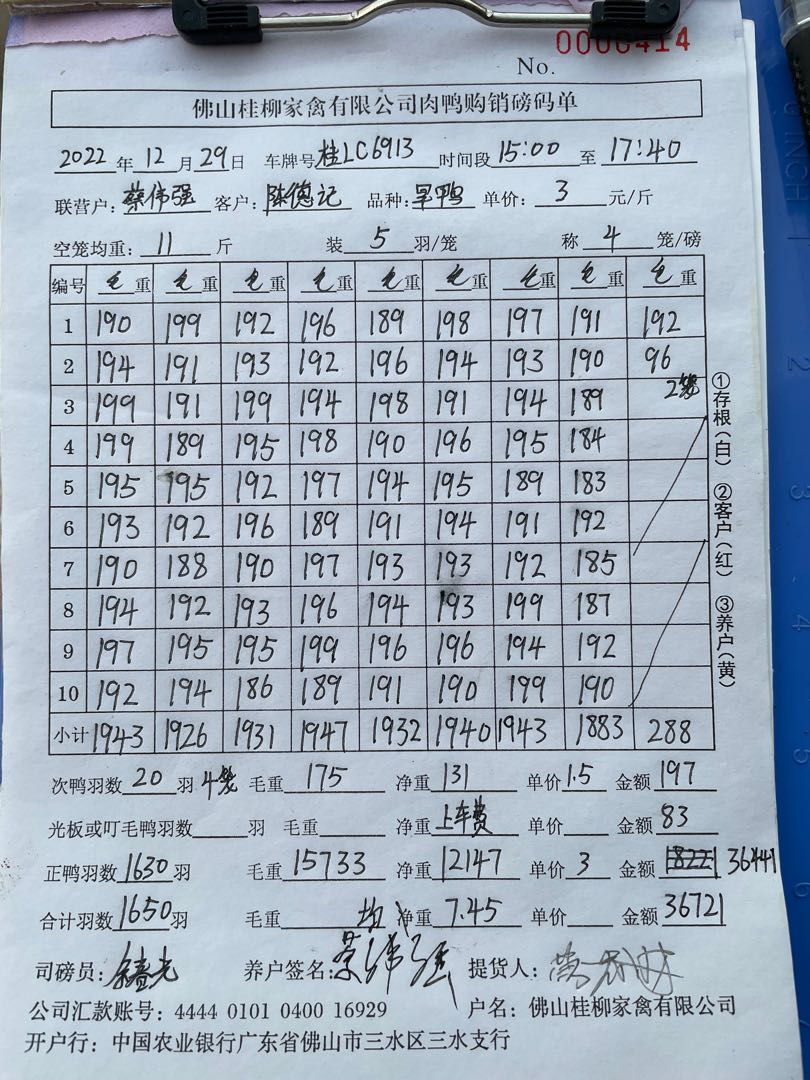 0000414
No.
佛山桂柳家禽有限公司肉鸭购销磅码单
2022 年 12 月 29 日 车牌号 桂LC6913 时间段 15:00 至 17:40
联营户: 蔡伟强 客户: 陈德记 品种: 旱鸭 单价: 3 元/斤
空笼均重: 11 斤 装 5 羽/笼 称 4 笼/磅
编号 毛重 毛重 毛重 毛重 毛重 毛重 毛重 毛重 毛重
1 190 199 192 196 189 198 197 191 192
2 194 191 193 192 196 194 193 190 96
3 199 191 199 194 198 191 194 189 2笼
4 199 189 195 198 190 196 195 184
5 195 195 192 197 194 195 189 183
6 193 192 196 189 191 194 191 192
7 190 188 190 197 193 193 192 185
8 194 192 193 196 194 193 199 187
9 197 195 195 199 196 196 194 192
10 192 194 186 189 191 190 199 190
小计 1943 1926 1931 1947 1932 1940 1943 1883 288
①存根(白) ②客户(红) ③养户(黄)
次鸭羽数 20 羽 4笼 毛重 175 净重 131 单价 1.5 金额 197
光板或叮毛鸭羽数 羽 毛重 净重 上车费 单价 金额 83
正鸭羽数 1630 羽 毛重 15733 净重 12147 单价 3 金额 36441
合计羽数 1650 羽 毛重 均 净重 7.45 单价 金额 36721
司磅员: 养户签名: 蔡伟强 提货人:
公司汇款账号: 4444 0101 0400 16929 户名: 佛山桂柳家禽有限公司
开户行: 中国农业银行广东省佛山市三水区三水支行